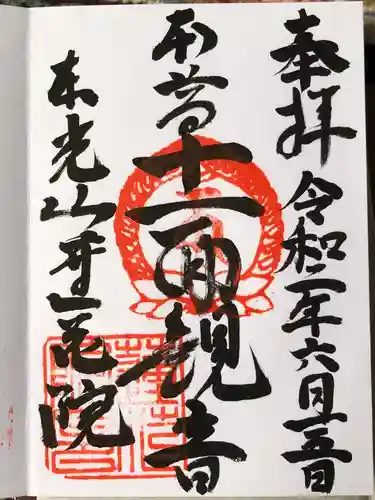 奉拝 令和二年六月一五日
本尊十一面観音
東光山蓮花院